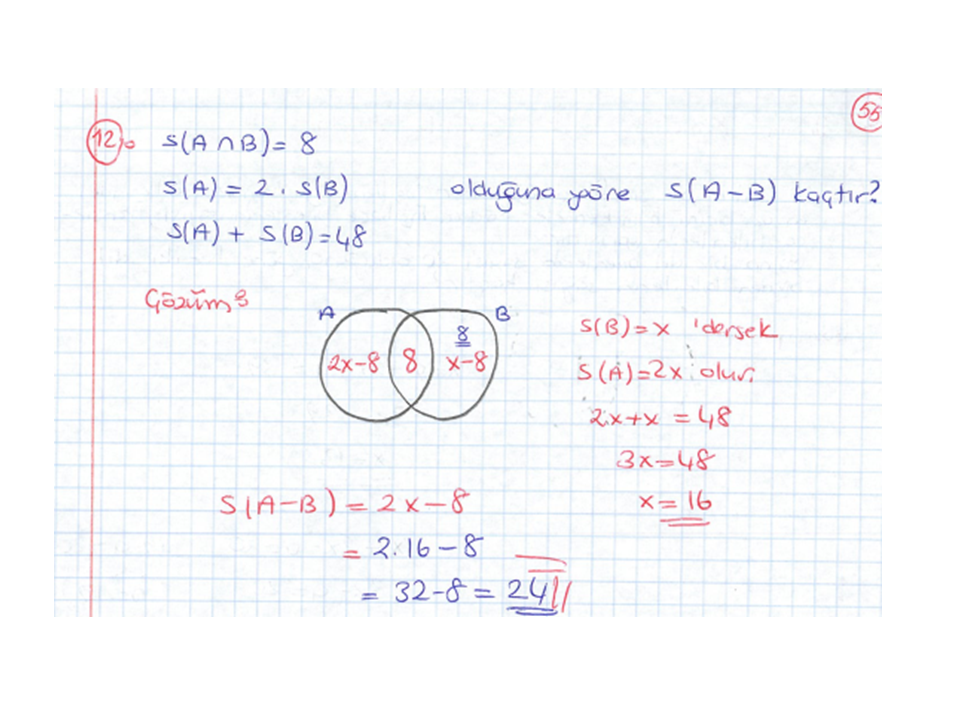 55
12. s(A ∩ B) = 8
s(A) = 2 . s(B) olduğuna göre s(A - B) kaçtır?
s(A) + s(B) = 48
Çözüm:
A B
8
2x-8 8 x-8
s(B) = x 'dersek
s(A) = 2x olur.
2x+x = 48
3x = 48
x = 16
s(A-B) = 2x-8
= 2.16-8
= 32-8 = 24//